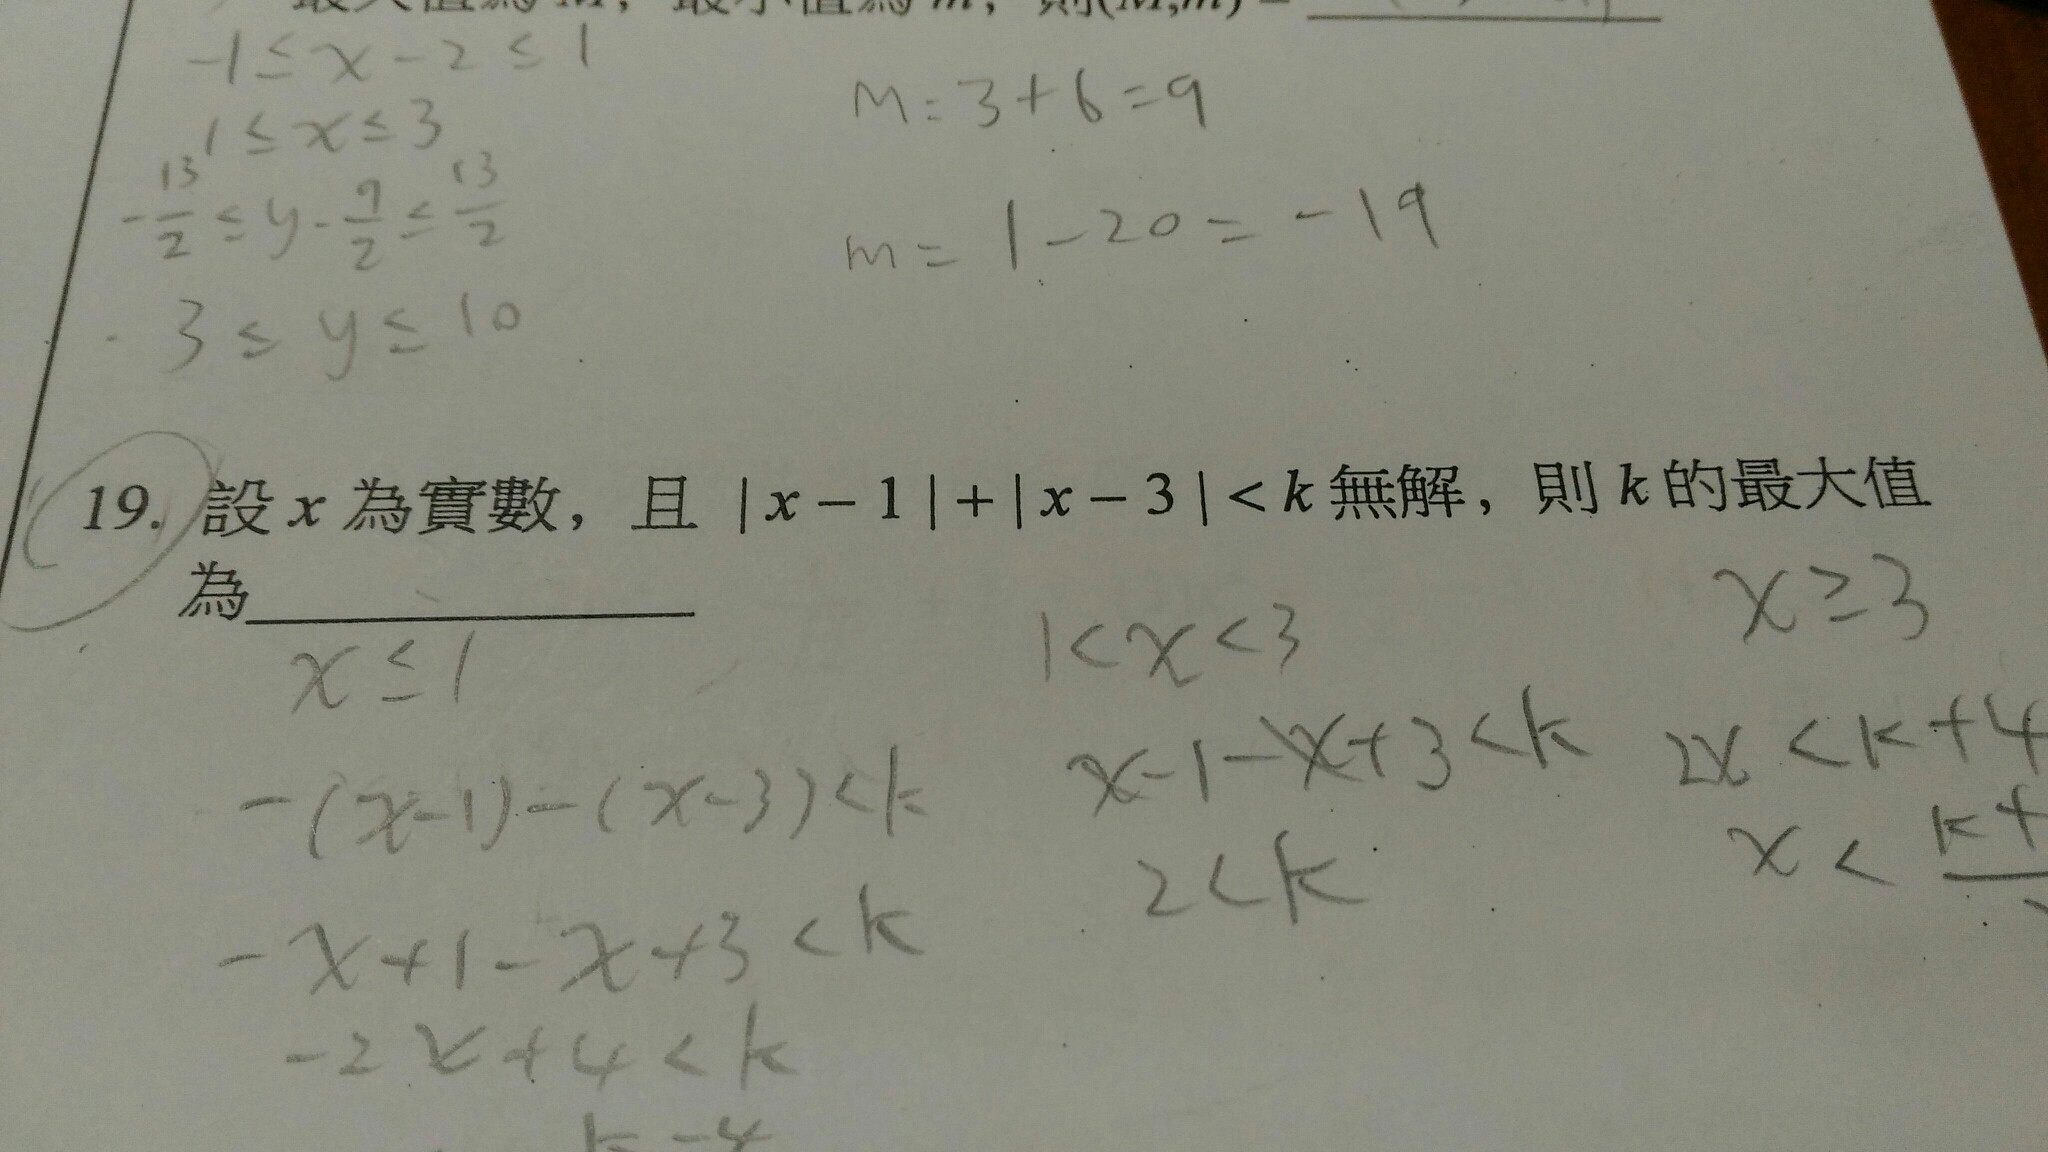 最大值為 M，最小值為 m，則(M,m) =
-1 ≤ x - 2 ≤ 1
1 ≤ x ≤ 3
-13/2 ≤ y - 7/2 ≤ 13/2
-3 ≤ y ≤ 10
M = 3 + 6 = 9
m = 1 - 20 = -19
19. 設 x 為實數，且 | x - 1 | + | x - 3 | < k 無解，則 k 的最大值
為
x ≤ 1
-(x-1)-(x-3) < k
-x+1-x+3 < k
-2x+4 < k
k-4
1 < x < 3
x-1-x+3 < k
2 < k
x ≥ 3
2x < k+4
x < k+